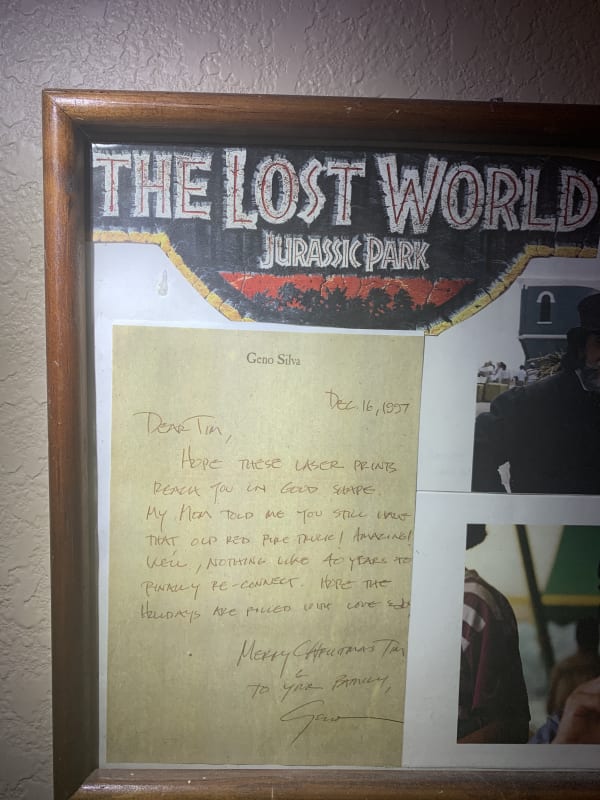 THE LOST WORLD
JURASSIC PARK
Geno Silva
Dec. 16, 1997
DEAR TIM,
HOPE THESE LASER PRINTS
REACH YOU IN GOOD SHAPE.
MY MOM TOLD ME YOU STILL HAVE
THAT OLD RED FIRE TRUCK! AMAZING!
WELL, NOTHING LIKE 40 YEARS TO
FINALLY RE-CONNECT. HOPE THE
HOLIDAYS ARE FILLED WITH LOVE
MERRY CHRISTMAS TIM
TO YOUR FAMILY,
Geno